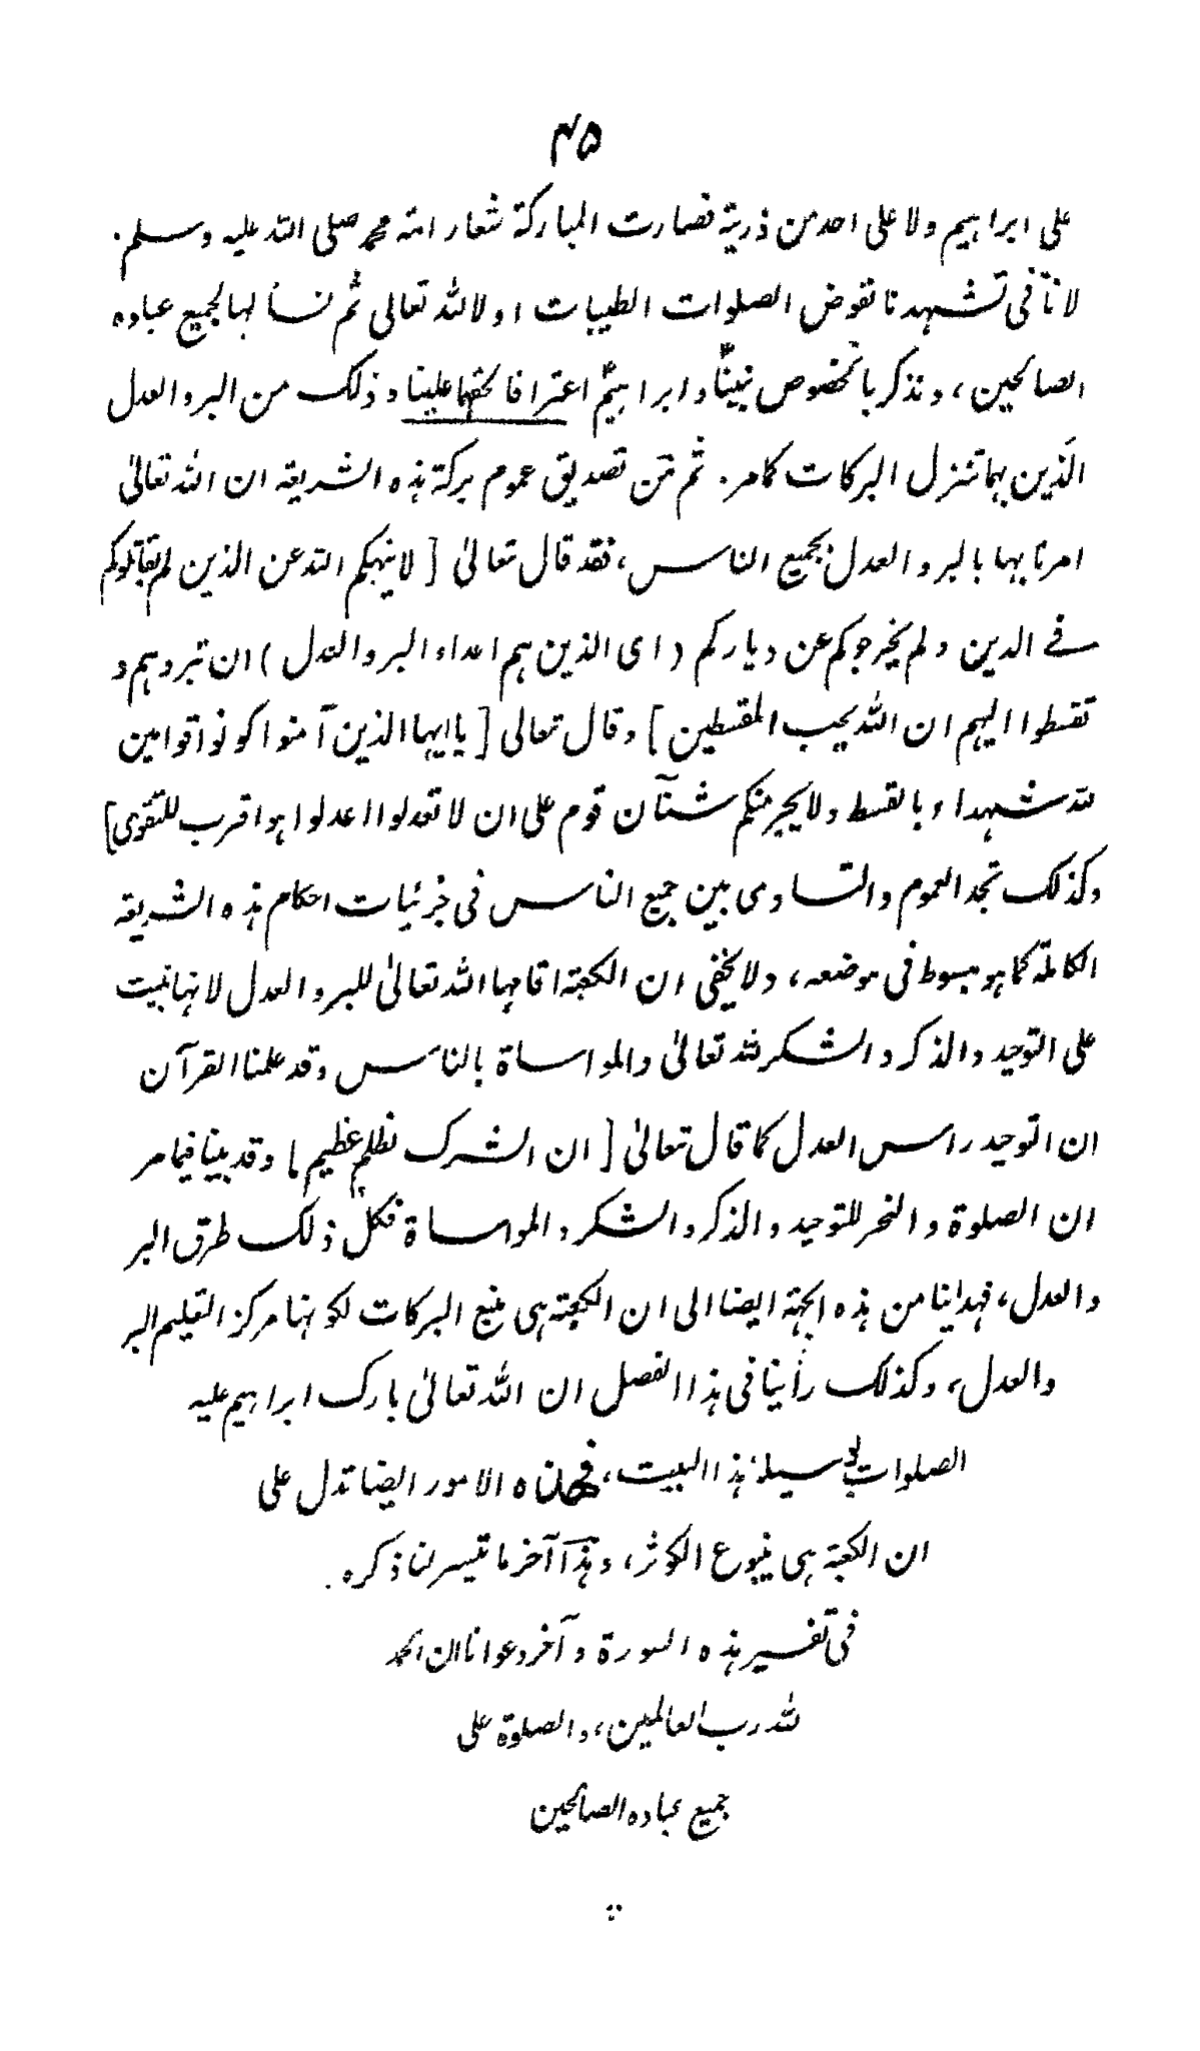 ۴۵
على ابراہیم ولا على احد من ذریتہ فصارت المبارکۃ شعار امۃ محمد صلی اللہ علیہ وسلم.
لانا فی تشہدنا نفوض الصلوات الطیبات اولا للہ تعالی ثم نسألہا لجمیع عبادہ
الصالحین، ونذکر بالخصوص نبینا وابراہیم اعترافا لحقہما علینا وذلک من البر والعدل
الذین بہما تتنزل البرکات کما مر. ثم من تصدیق عموم برکۃ ہذہ الشریعۃ ان اللہ تعالیٰ
امرنا بہا بالبر والعدل بجمیع الناس، فقد قال تعالیٰ [ لا ینہکم اللہ عن الذین لم یقاتلوکم
فے الدین ولم یخرجوکم عن دیارکم (ای الذین ہم اعداء البر والعدل) ان تبروہم و
تقسطوا الیہم ان اللہ یحب المقسطین ] وقال تعالی [ یا ایہا الذین آمنوا کونوا قوامین
للہ شہداء بالقسط ولا یجرمنکم شنآن قوم علی ان لا تعدلوا اعدلوا ہو اقرب للتقوی]
وکذلک تجد العموم والتساوی بین جمیع الناس فی جزئیات احکام ہذہ الشریعۃ
الکاملۃ کما ہو مبسوط فی موضعہ، ولا یخفی ان الکعبۃ اقامہا اللہ تعالیٰ للبر والعدل لانہا بنیت
علی التوحید والذکر والشکر للہ تعالیٰ والمواساۃ بالناس وقد علمنا القرآن
ان التوحید راس العدل کما قال تعالیٰ [ ان الشرک لظلم عظیم ] وقد بینا فیما مر
ان الصلوۃ والنحر للتوحید والذکر والشکر والمواساۃ فکل ذلک طرق البر
والعدل، فہدینا من ہذہ الجہۃ ایضا الی ان الکعبۃ ہی منبع البرکات لکونہا مرکز التعلیم البر
والعدل، وکذلک رأینا فی ہذا الفصل ان اللہ تعالیٰ بارک ابراہیم علیہ
الصلوات بوسیلۃ ہذا البیت، فہذہ الامور ایضا تدل علی
ان الکعبۃ ہی ینبوع الکوثر، وہذا آخر ما تیسر لنا ذکرہ.
فی تفسیر ہذہ السورۃ وآخر دعوانا ان الحمد
للہ رب العالمین، والصلوۃ علی
جمیع عبادہ الصالحین